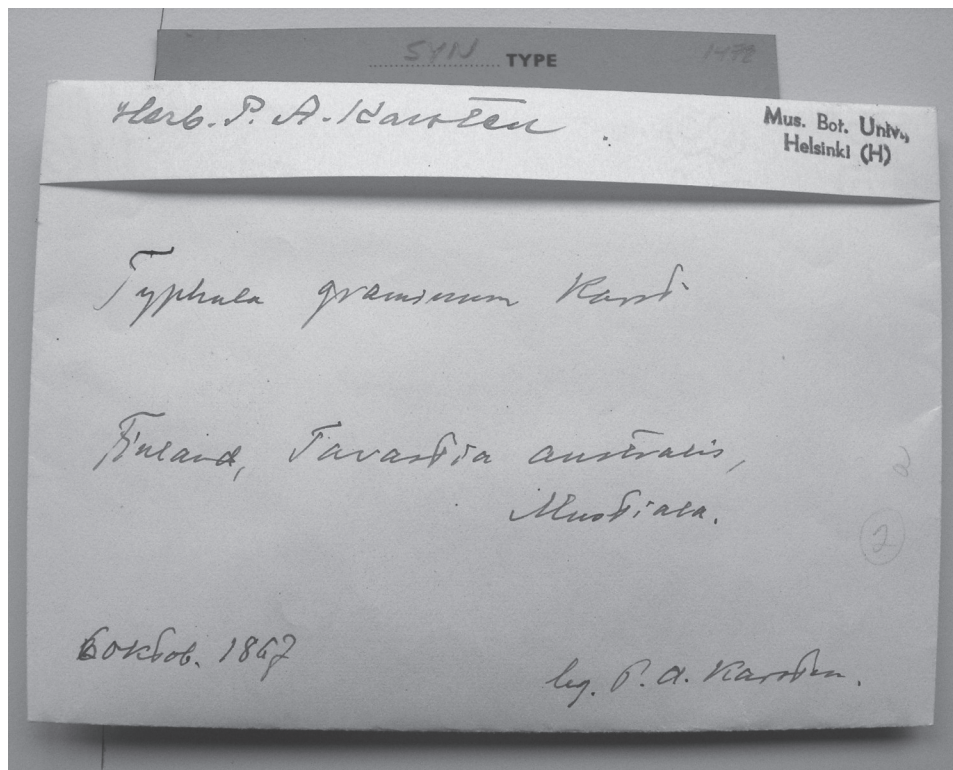 SYN TYPE 1472
Herb. P. A. Karsten
Mus. Bot. Univ.,
Helsinki (H)
Typhula graminum Karst
Finland, Tavastia australis,
Mustiala.
2
6 oktob. 1867
leg. P. A. Karsten.